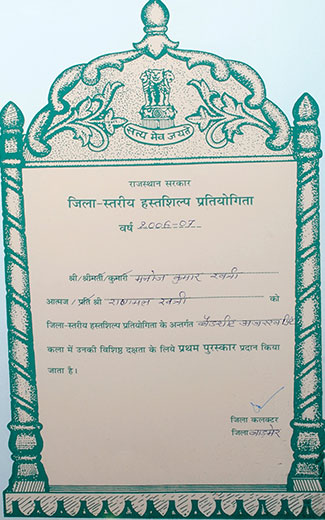 सत्यमेव जयते
राजस्थान सरकार
जिला-स्तरीय हस्तशिल्प प्रतियोगिता
वर्ष 2006-07
श्री/श्रीमती/कुमारी मनोज कुमार खत्री
आत्मज/प्रति श्री राणामल खत्री को
जिला-स्तरीय हस्तशिल्प प्रतियोगिता के अन्तर्गत
कला में उनकी विशिष्ठ दक्षता के लिये प्रथम पुरस्कार प्रदान किया
जाता है।
जिला कलक्टर
जिला बाड़मेर